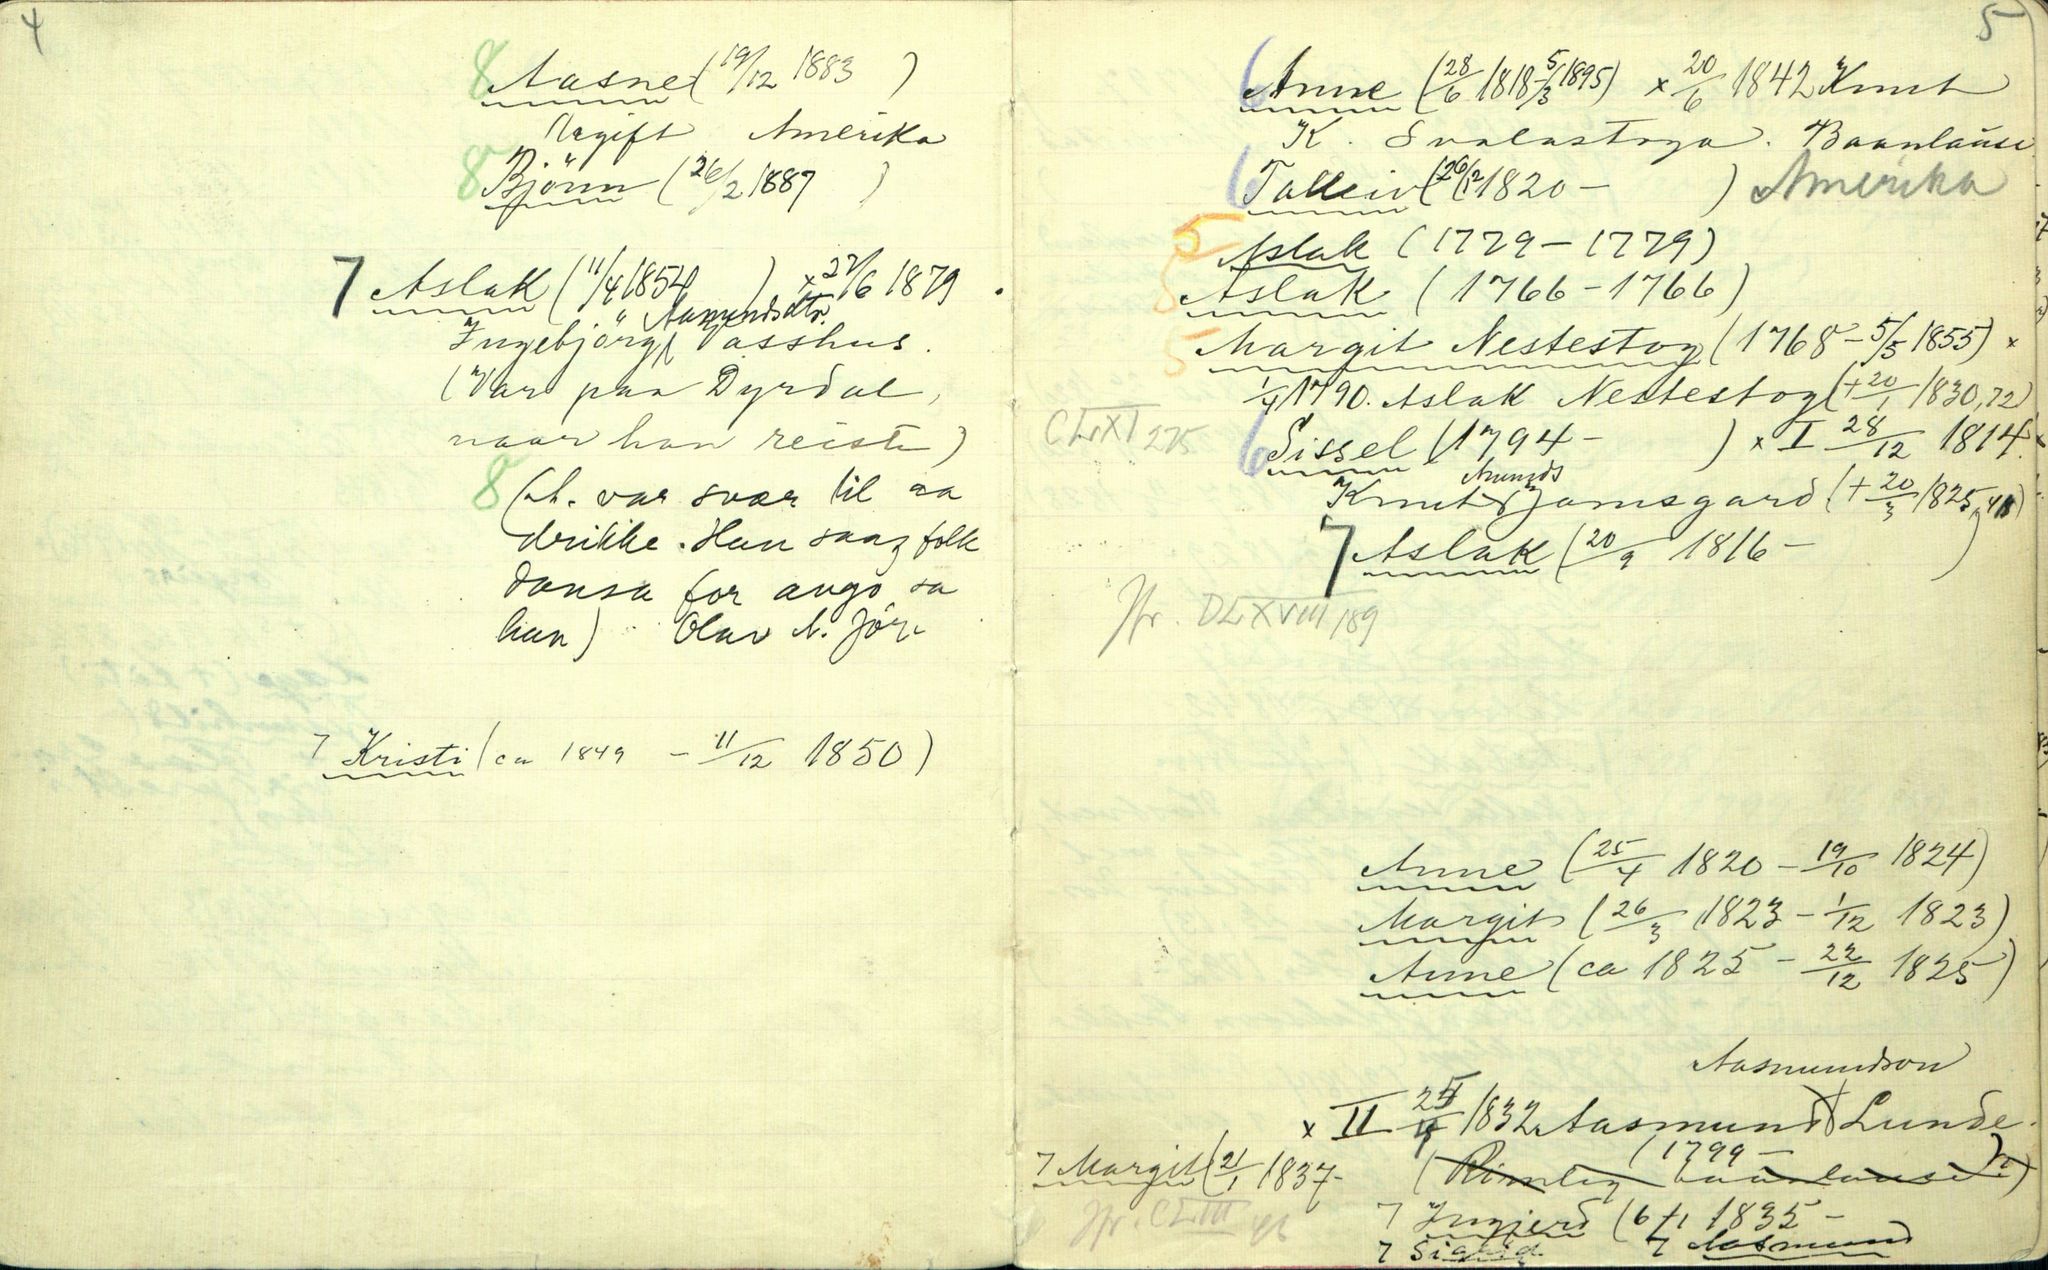 4
8 Aasne (19/12 1883 )
Ugift Amerika
8 Björn (26/2 1887 )
7 Aslak (11/4 1854 ) x 27/6 1879
Aasmundsdtr.
Ingebjörg Vasshus.
(Var paa Dyrdal,
naar han reiste)
8 (A. var svær til aa
drikke. Han saag folk
dansa for augo, sa
han) Olav A. Jör.
7 Kristi (ca 1849 - 11/12 1850)
5
6 Anne (28/6 1818 - 5/3 1895) x 20/6 1842 Knut
K. Svalastoga. Baanlause
6 Talleiv (26/12 1820 - ) Amerika
5 Aslak (1779 - 1779)
5 Aslak (1766 - 1766)
5 Margit Nestestog (1768 - 5/5 1855) x
1/4 1790. Aslak Nestestog (+ 20/1 1830, 72)
CLXI 275
6 Sissel (1794 - ) x I 28/12 1814
Aamunds
Knut Gjamsgard (+ 20/3 1825, 48)
7 Aslak (20/9 1816 - )
Jfr. DLXVIII 189
Anne (25/4 1820 - 19/10 1824)
Margit (26/3 1823 - 1/12 1823)
Anne (ca 1825 - 22/12 1825)
Aasmundson
x II 1832 Aasmund Lunde.
(1799 - )
7 Margit (21/1 1837 -
(Rimelig baanlause)
Jfr. CLIII 46
7 Ingjerd (6/1 1835 -
7 Sigrid 7 Aasmund